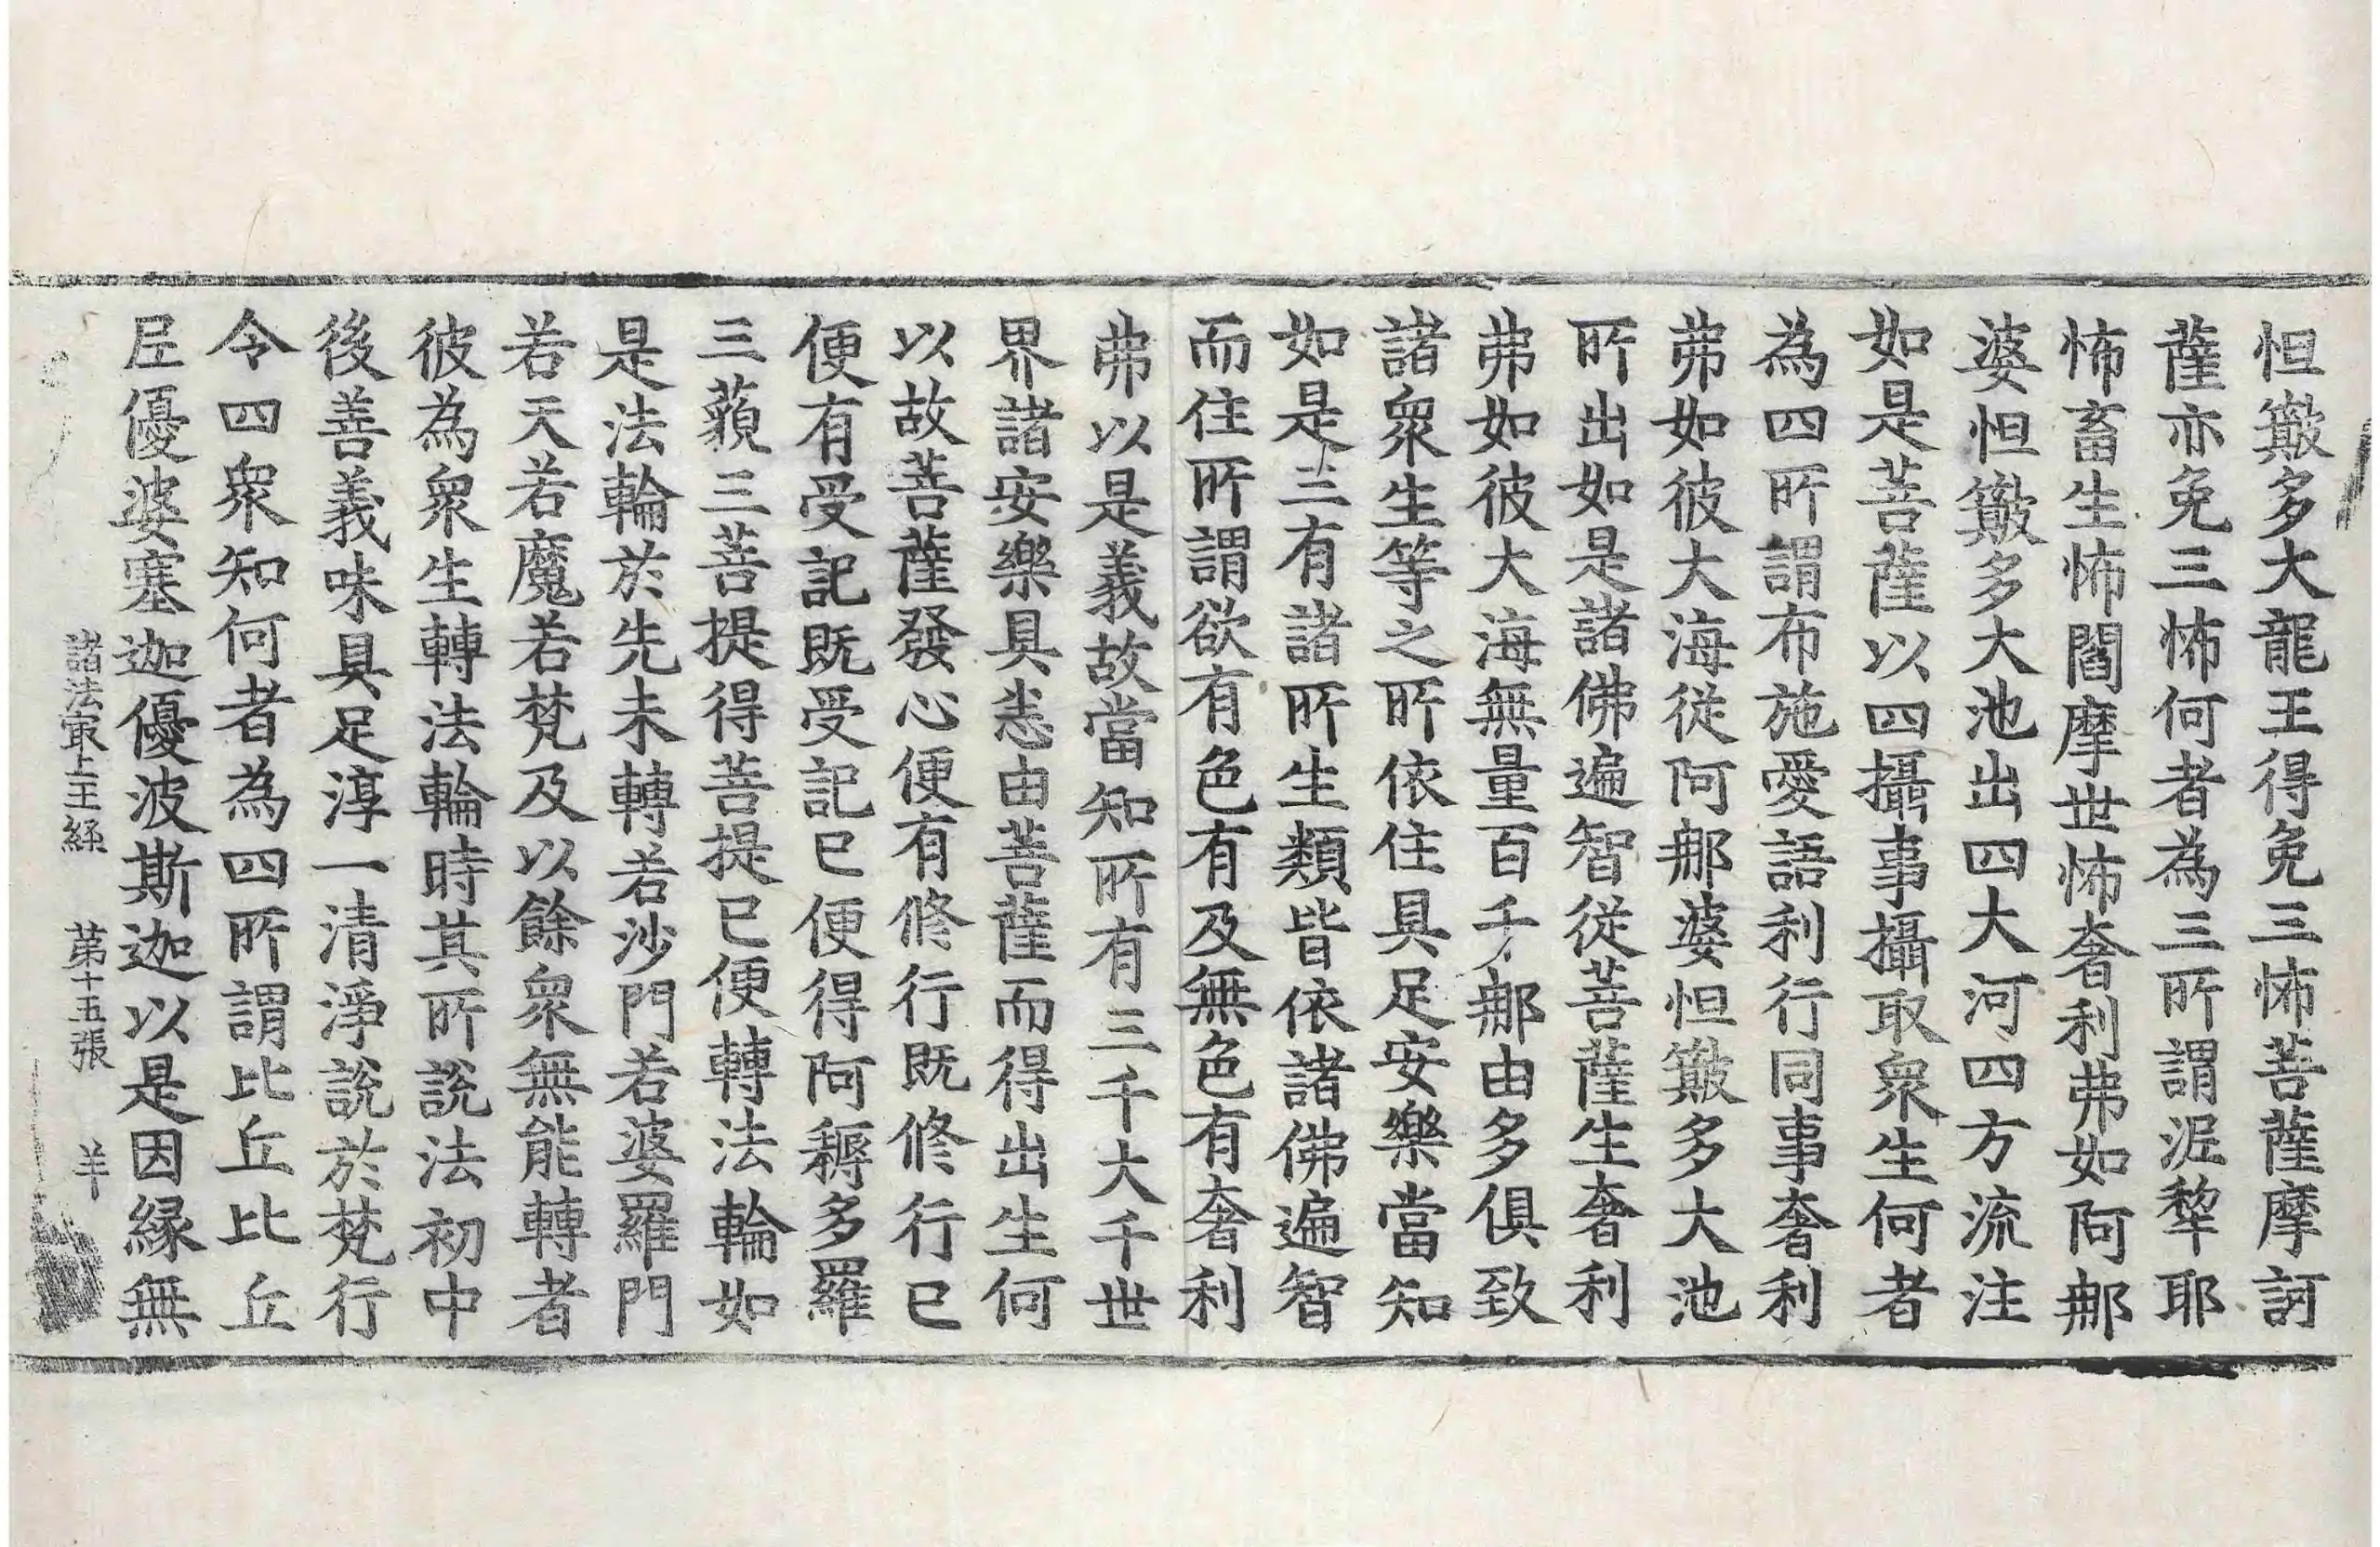 怛䶩多大龍王得免三怖菩薩摩訶
薩亦免三怖何者為三所謂泥犂耶
怖畜生怖閻摩世怖奢利弗如阿那
婆怛䶩多大池出四大河四方流注
如是菩薩以四攝事攝取衆生何者
為四所謂布施愛語利行同事奢利
弗如彼大海從阿那婆怛䶩多大池
所出如是諸佛遍智從菩薩生奢利
弗如彼大海無量百千那由多俱致
諸衆生等之所依住具足安樂當知
如是三有諸所生類皆依諸佛遍智
而住所謂欲有色有及無色有奢利
弗以是義故當知所有三千大千世
界諸安樂具悉由菩薩而得出生何
以故菩薩發心便有修行既修行已
便有受記既受記已便得阿耨多羅
三藐三菩提得菩提已便轉法輪如
是法輪於先未轉若沙門若婆羅門
若天若魔若梵及以餘衆無能轉者
彼為衆生轉法輪時其所說法初中
後善義味具足淳一清淨說於梵行
令四衆知何者為四所謂比丘比丘
尼優婆塞迦優波斯迦以是因緣無
諸法冣上王經 第十五張 羊